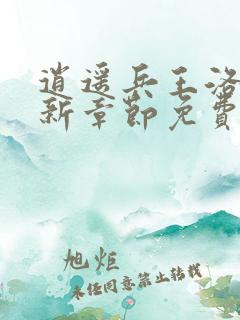 逍遥兵王洛
新章節免費
旭炬
未任同意禁止转载